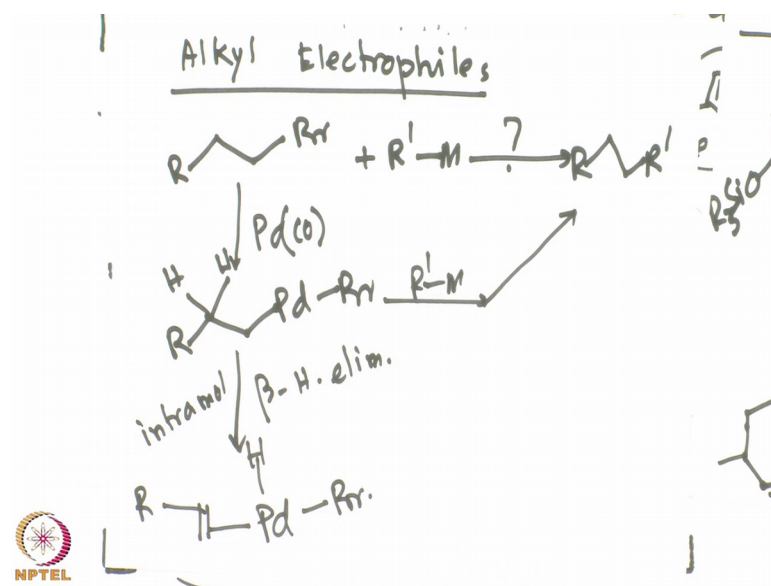 Alkyl Electrophiles
R Br + R'-M ? R R'
Pd(0)
H H
R Pd-Br R'-M
intramol β-H. elim.
H
R Pd-Br.
R3SiO
NPTEL